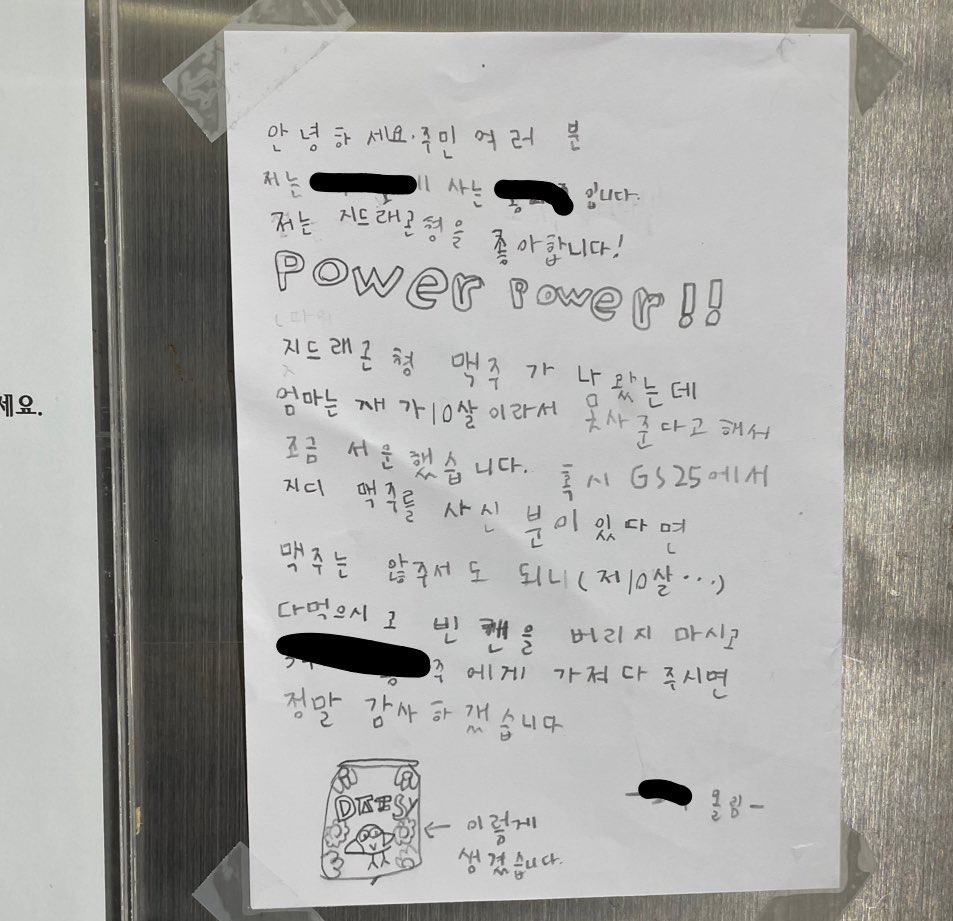 안녕하세요. 주민 여러 분
저는 사는 입니다.
저는 지드래곤형을 좋아합니다!
Power Power!!
지드래곤 형 맥주가 나왔는데
엄마는 재가 10살이라서 못사준다고 해서
조금 서운했습니다. 혹시 GS25에서
지디 맥주를 사신 분이 있다면
맥주는 않주서도 되니(제10살...)
다먹으시고 빈 캔을 버리지 마시고
에게 가져다 주시면
정말 감사하겠습니다
- 올림-
이렇게
생겼습니다.
세요.